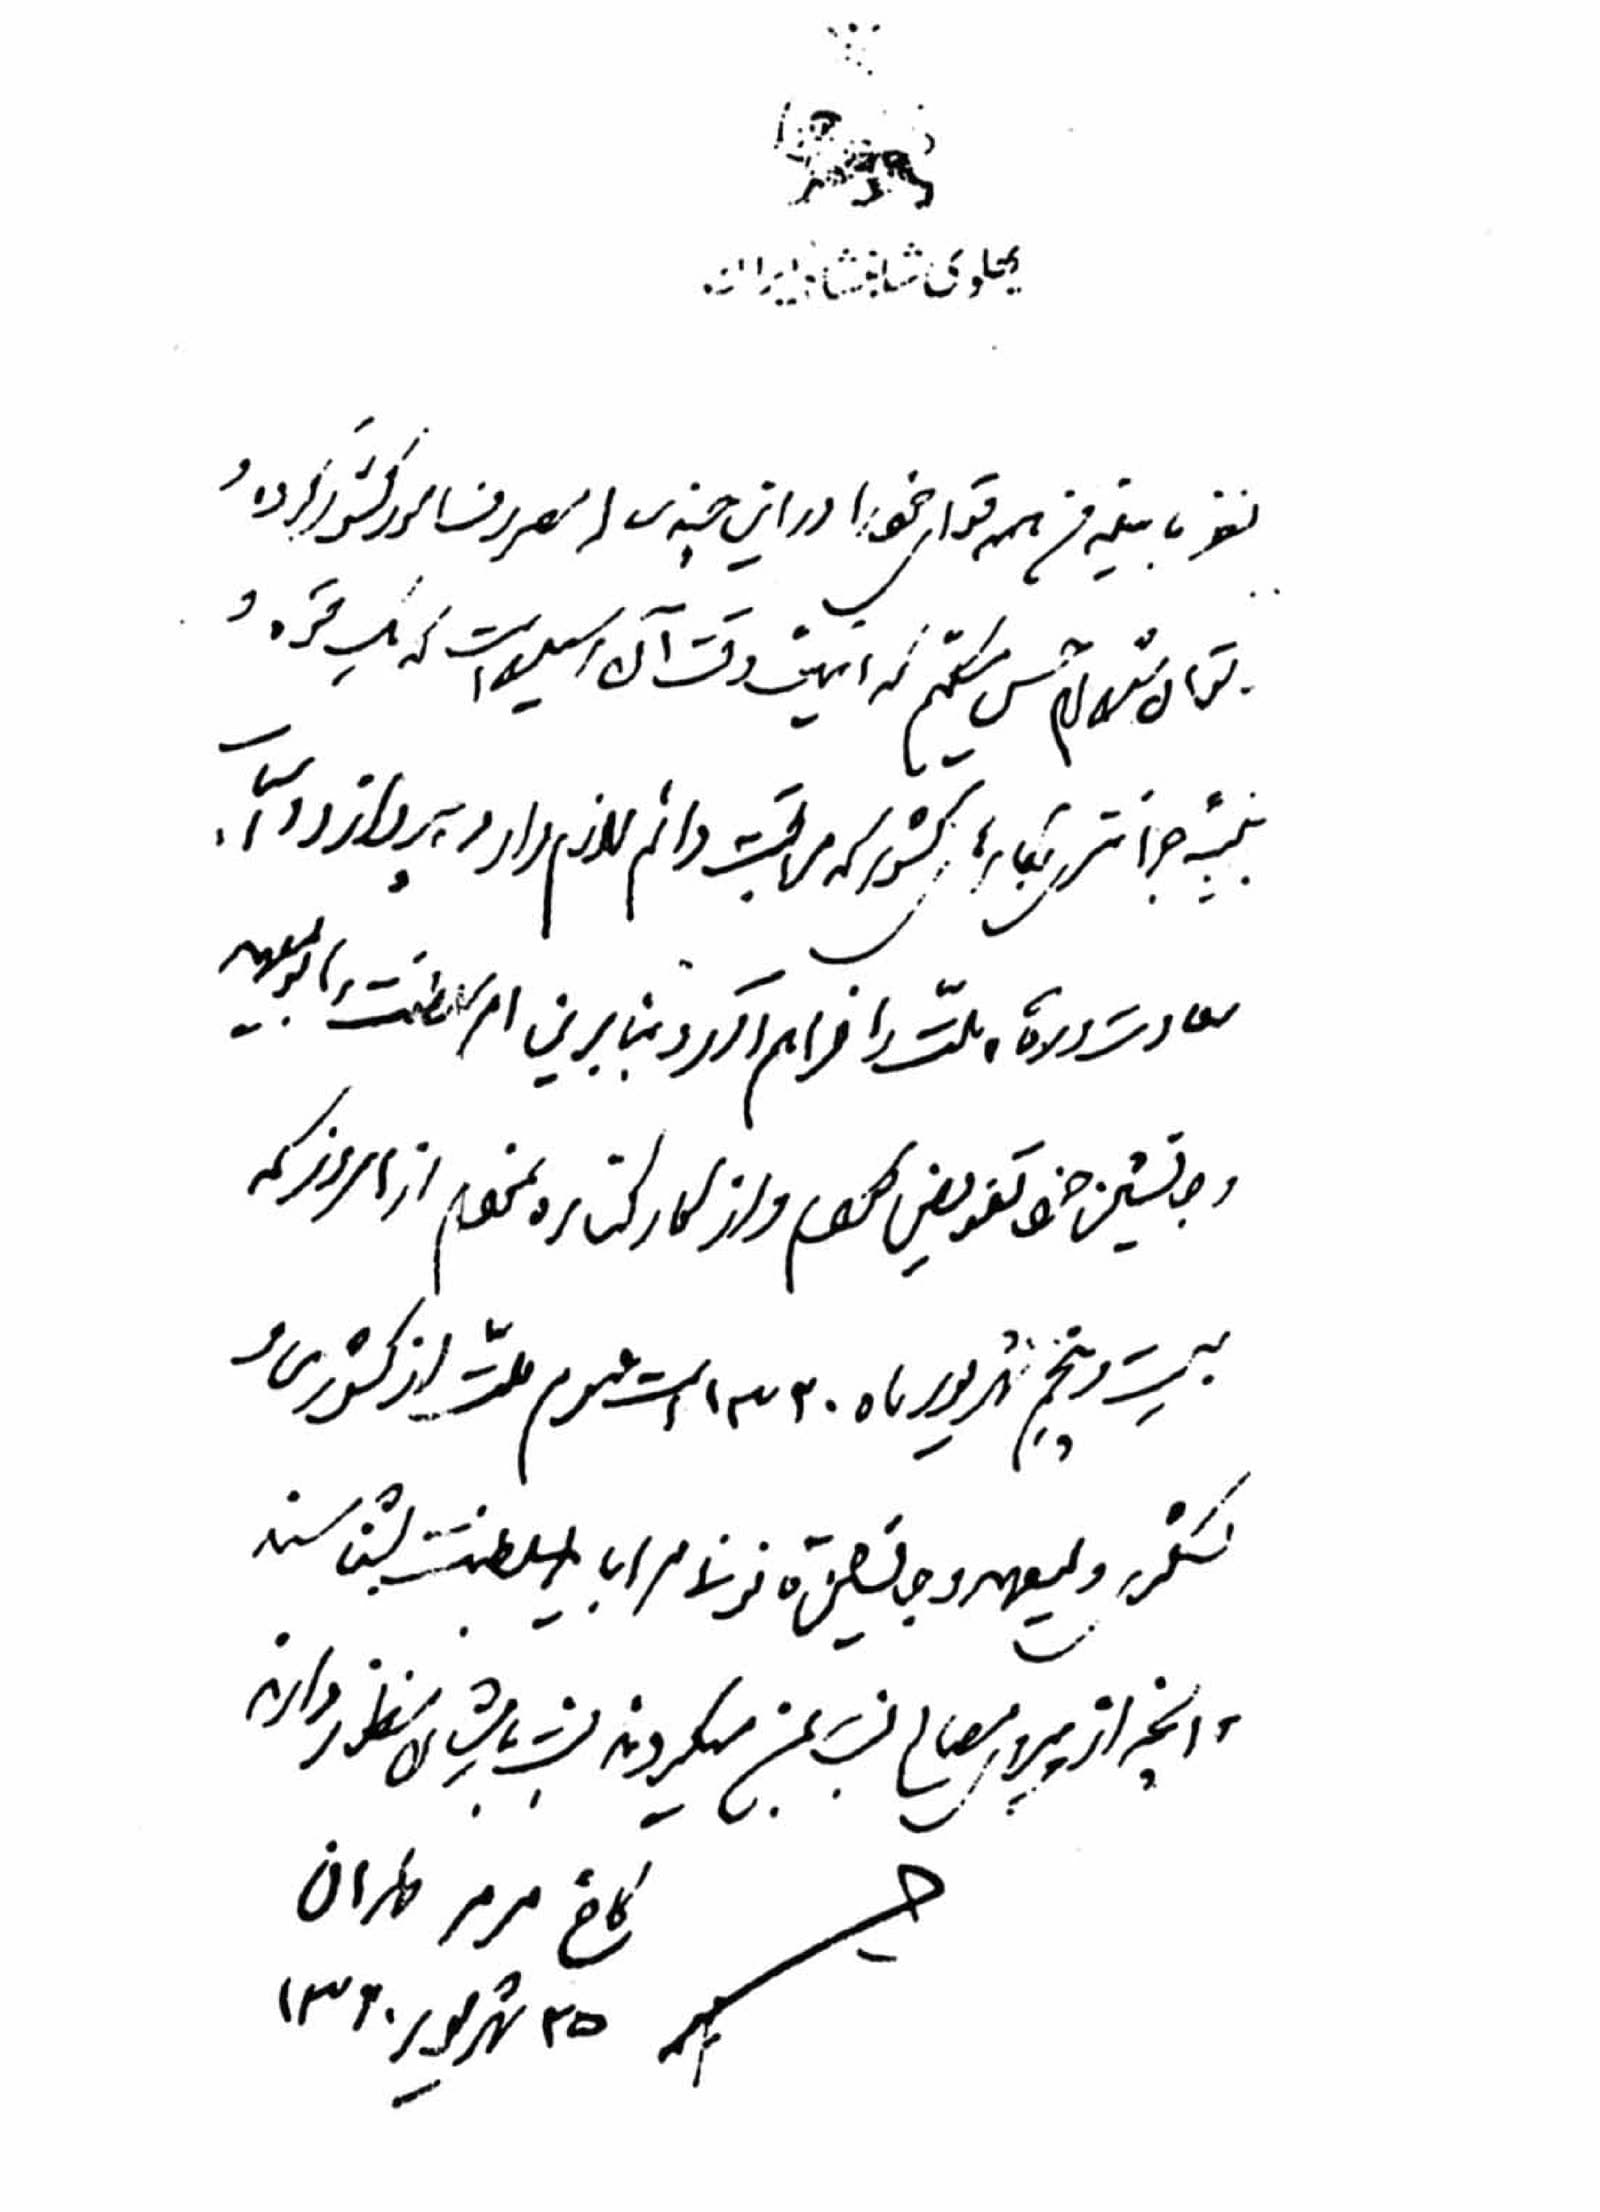 پهلوی شاهنشاه ایران
نظر باینکه من همه قوای خود را در این چند ساله مصروف امور کشور کرده و
ناتوان شده‌ام حس میکنم که اینک وقت آن رسیده است که یک قوه و
بنیه جوانتری بکارهای کشور که مراقبت دائم لازم دارد بپردازد و اسباب
سعادت و رفاه ملت را فراهم آورد بنابراین امور سلطنت را بولیعهد
و جانشین خود تفویض کردم و از کار کناره نمودم از امروز که
بیست و پنجم شهریور ماه ۱۳۲۰ است عموم ملت از کشوری و
لشکری ولیعهد و جانشین قانونی مرا باید بسلطنت بشناسند
و آنچه از پیروی مصالح نسبت بمن میکردند نسبت بایشان منظور دارند
کاخ مرمر طهران
۲۵ شهریور ۱۳۲۰